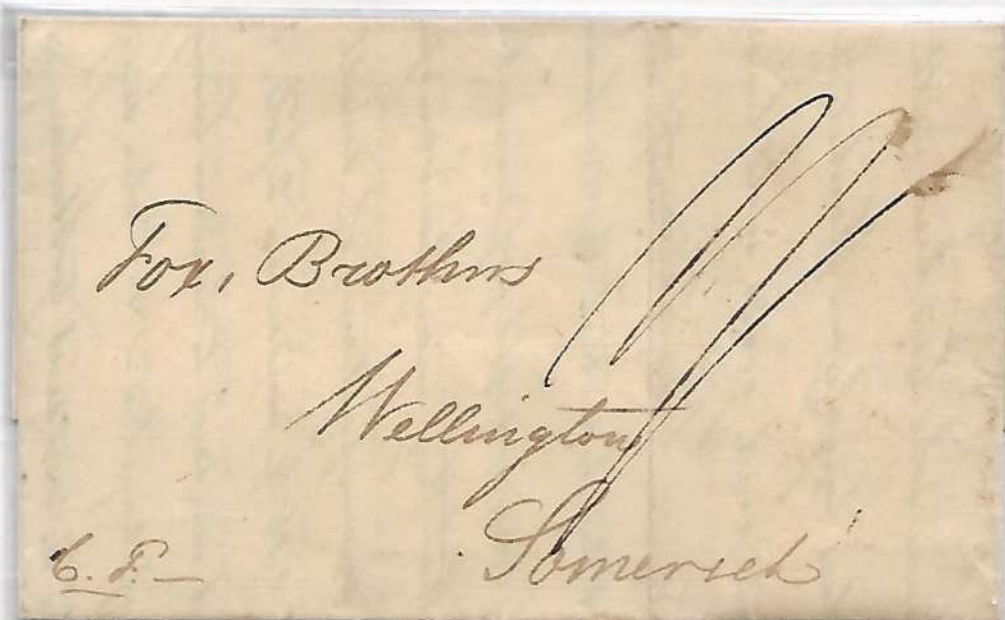 Fox, Brothers
Wellington
Somerset